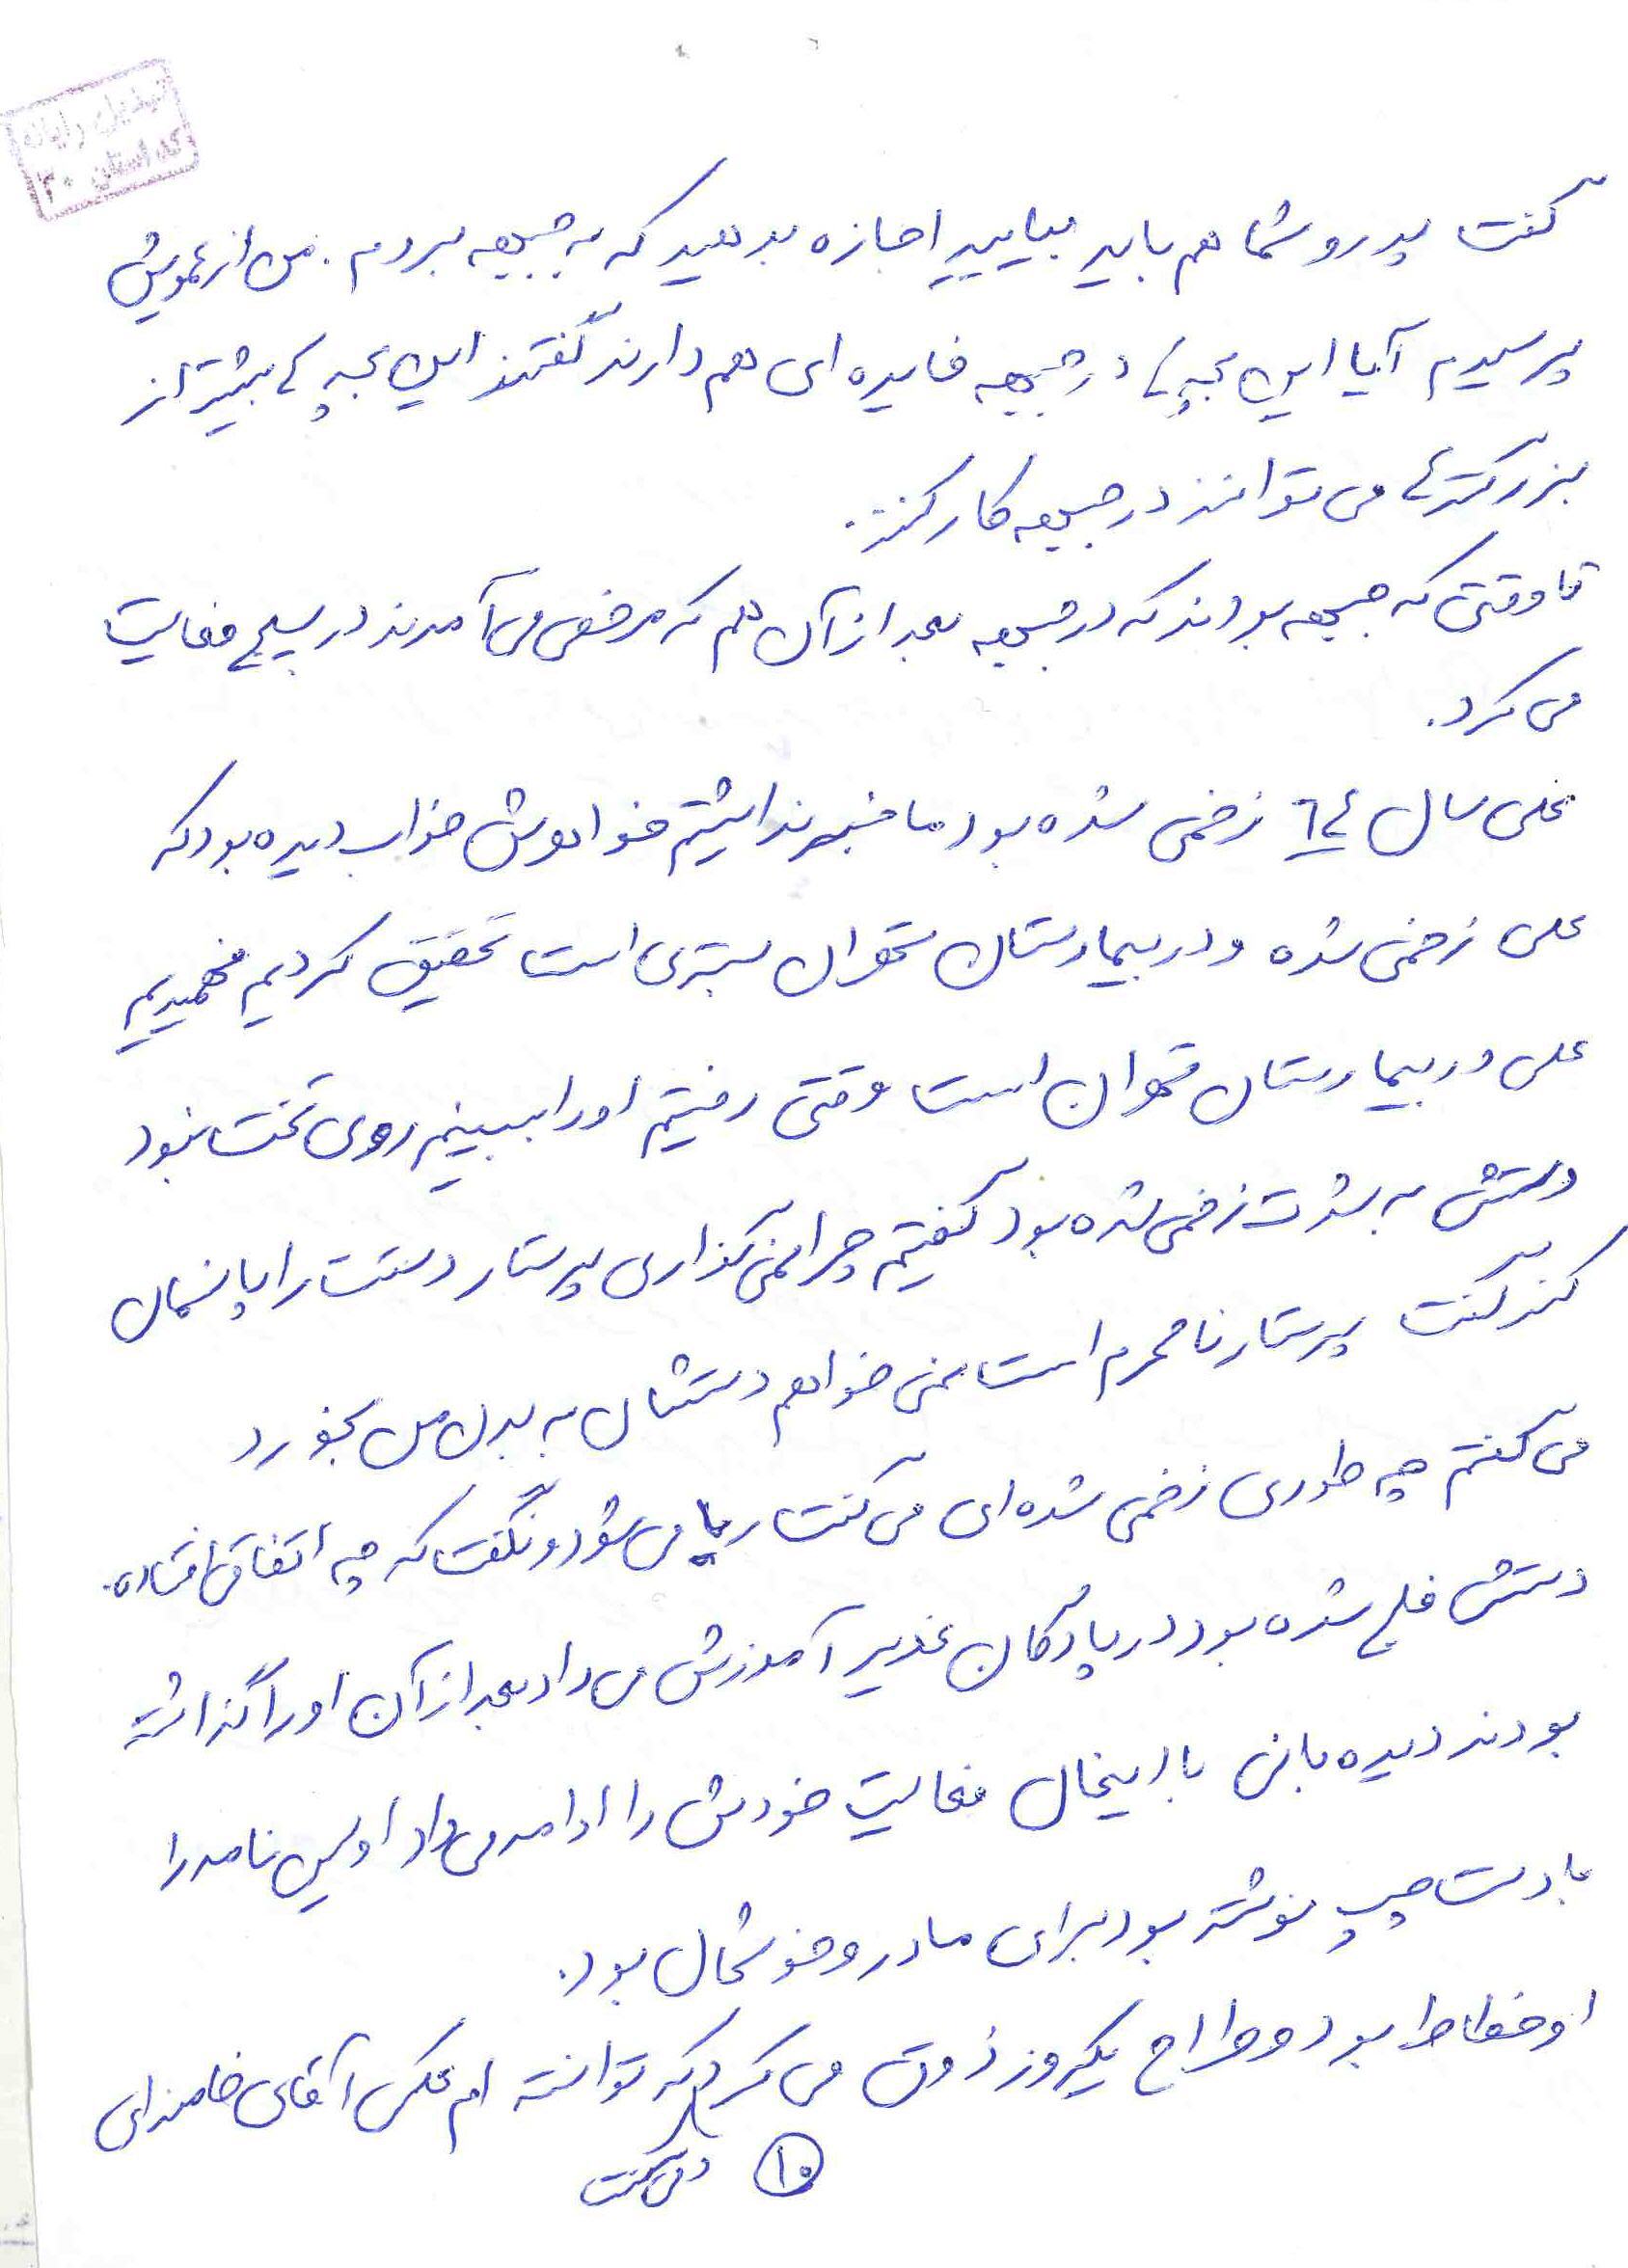 تبدیل رایانه
کد استان ۳۰
گفت پدر و شما هم باید بیایید اجازه بدهید که به جبهه بروم. من از عمویش
پرسیدم آیا این بچه ها در جبهه فایده ای هم دارند گفتند این بچه ها بیشتر از
بزرگترها می توانند در جبهه کار کنند.
تا وقتی که جبهه بودند که در جبهه بعد از آن هم که مرخصی می آمدند در بسیج فعالیت
می کرد.
علی سال ٦٤ زخمی شده بود ما خبر نداشتیم خواهرش خواب دیده بود که
علی زخمی شده و در بیمارستان تهران بستری است تحقیق کردیم فهمیدیم
علی در بیمارستان تهران است وقتی رفتیم او را ببینیم روی تخت نبود
دستش به شدت زخمی شده بود گفتیم چرا نمی گذاری پرستار دستت را پانسمان
کند گفت پرستار نامحرم است نمی خواهم دستشان به بدن من بخورد
می گفتم چه طوری زخمی شده ای می گفت ریا می شود و نگفت که چه اتفاقی افتاده.
دستش فلج شده بود در پادگان غدیر آموزش می داد بعد از آن او را گذاشته
بودند دیده بانی با اینحال فعالیت خودش را ادامه می داد اولین نامه را
با دست چپ نوشته بود برای مادر و خوشحال بود.
او خطاط بود و طراح یکروز ذوق می کرد که توانسته ام عکس آقای خامنه ای
و می گفت
۱۰